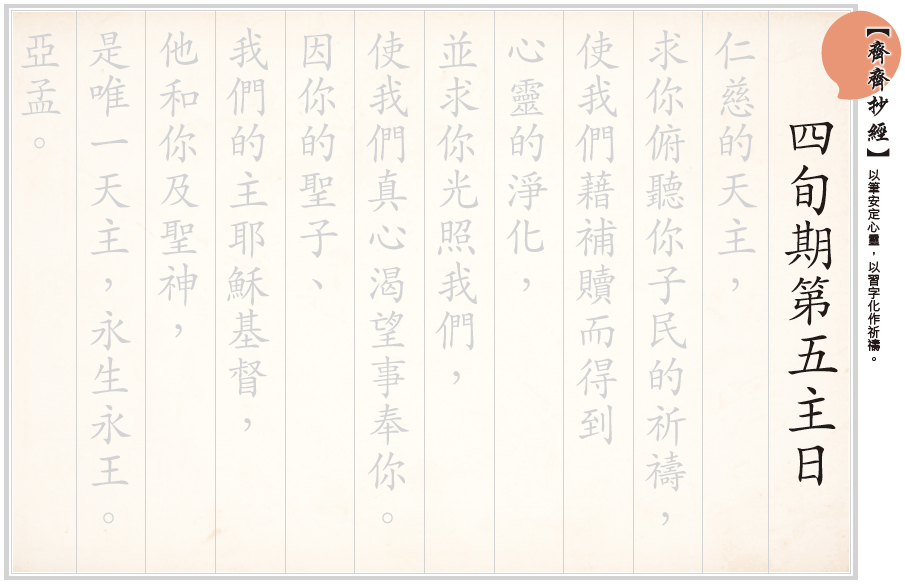 【齊齊抄經】以筆安定心靈，以習字化作祈禱。
四旬期第五主日
仁慈的天主，
求你俯聽你子民的祈禱，
使我們藉補贖而得到
心靈的淨化，
並求你光照我們，
使我們真心渴望事奉你。
因你的聖子、
我們的主耶穌基督，
他和你及聖神，
是唯一天主，永生永王。
亞孟。